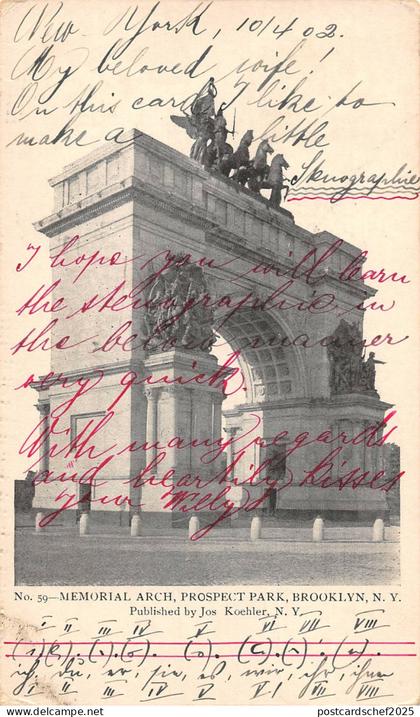 New-York, 10/4 02.
My beloved wife!
On this card I like to
make a little
Skenographie
I hope you will learn
the stenographie in
the below manner
very quick.
With many regards
and heartily kisses
your Willy
No. 59—MEMORIAL ARCH, PROSPECT PARK, BROOKLYN, N. Y.
Published by Jos Koehler, N. Y.
I II III IV V VI VII VIII
ich, du, er, sie, es, wir, ihr, ihnen
I II III IV V VI VII VIII
© postcardschef2025